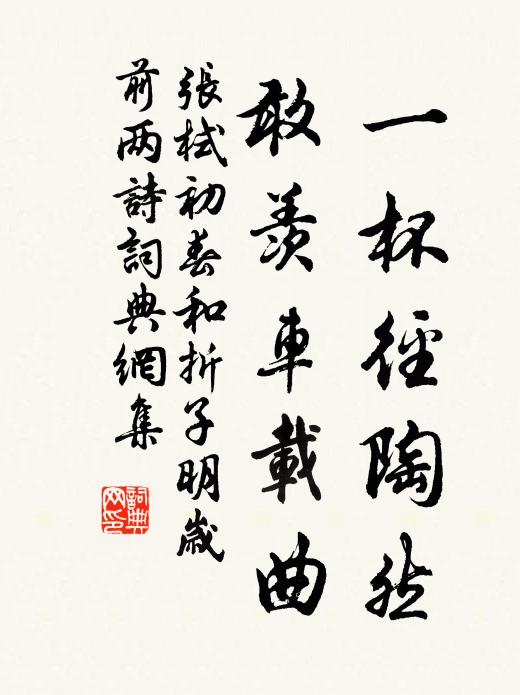 一杯徑陶然
敢羨車載曲
張栻初春和折子明歲
前两詩詞典網集
詞典网印